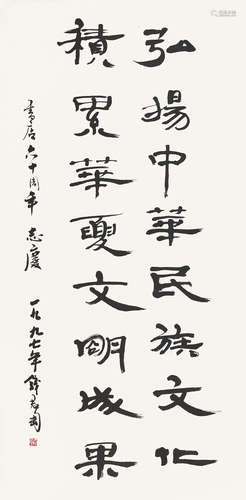 弘揚中華民族文化
積累華夏文明成果
書店六十周年 志慶
一九九七年 錢君匋